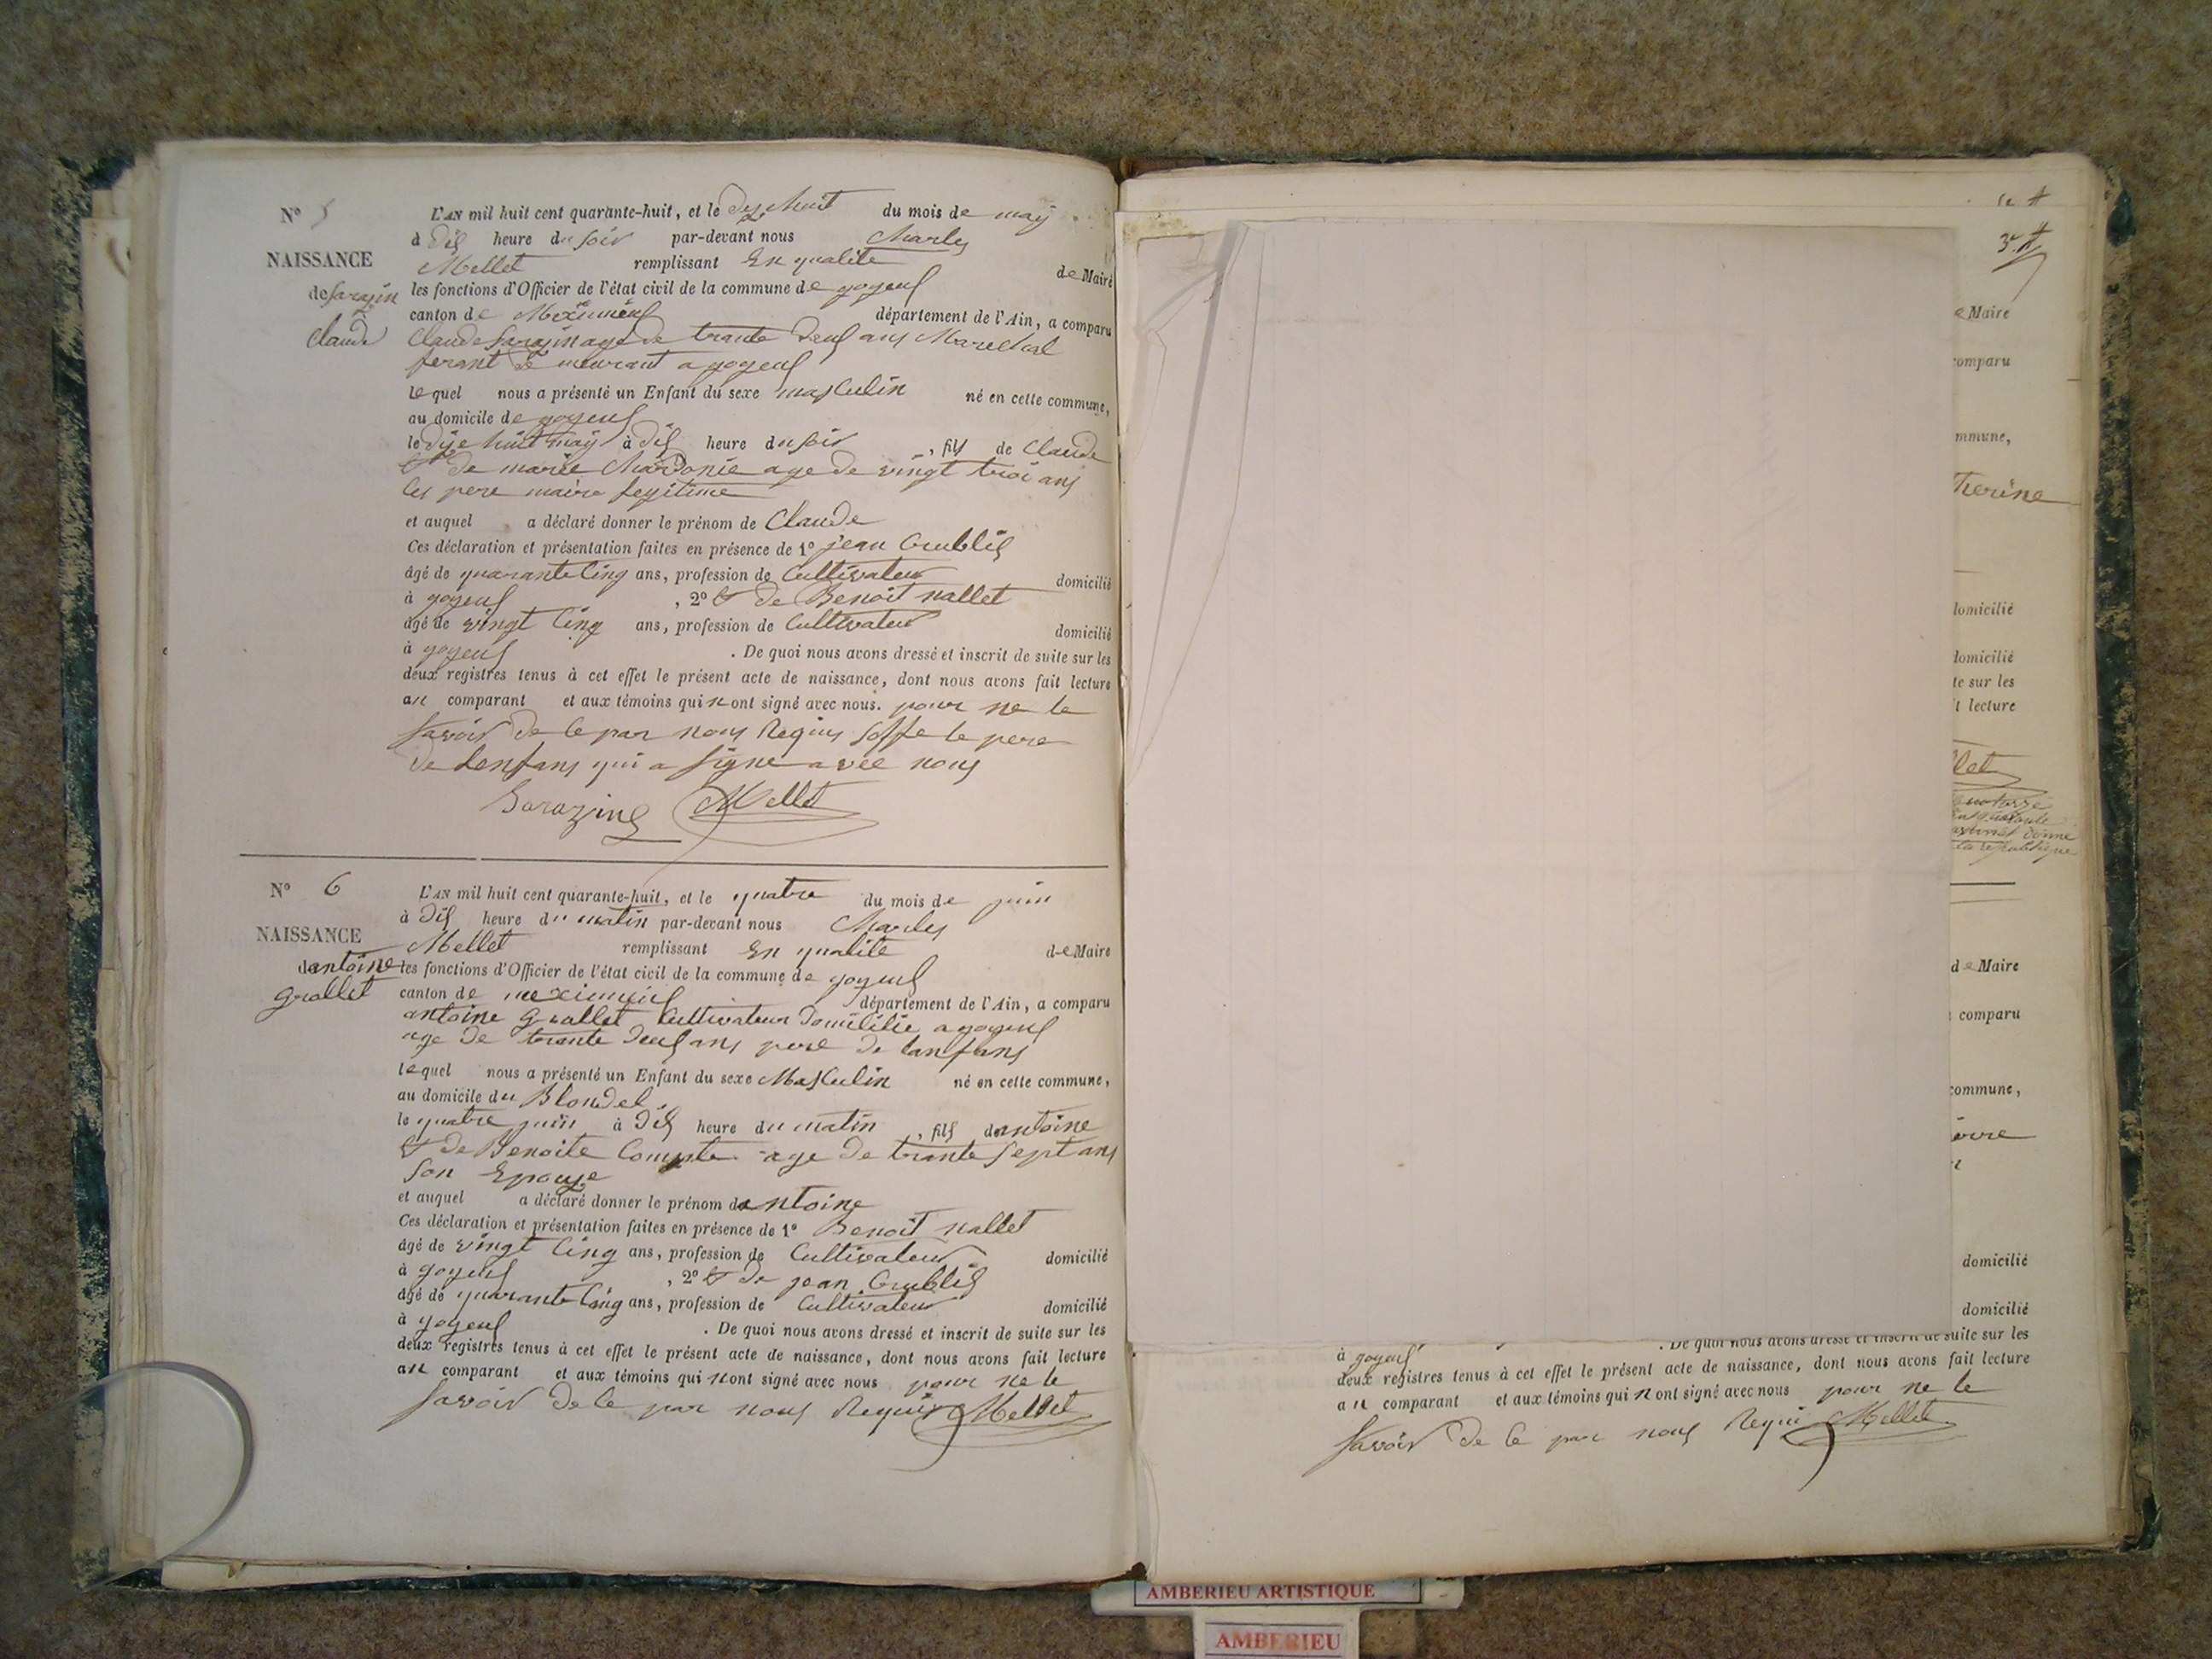 N° 5
L'AN mil huit cent quarante-huit, et le dize huit du mois de may
à dix heure du soir par-devant nous Charles
NAISSANCE
Mellet remplissant En qualite de Maire
de Sarazin les fonctions d'Officier de l'état civil de la commune de
Claude
canton de département de l'Ain, a comparu
Claude Sarazin age de trante deux ans Marechal
ferant
le quel nous a présenté un Enfant du sexe masculin né en cette commune,
au domicile de
le dize huit may à dix heure du soir, fils de Claude
& de marie age de vingt troi ans
les pere maire legitime
et auquel a déclaré donner le prénom de Claude
Ces déclaration et présentation faites en présence de 1° jean
âgé de quarante cinq ans, profession de Cultivateur domicilié
à , 2° & de Benoit nallet
âgé de vingt cinq ans, profession de Cultivateur domicilié
à . De quoi nous avons dressé et inscrit de suite sur les
deux registres tenus à cet effet le présent acte de naissance, dont nous avons fait lecture
au comparant et aux témoins qui n ont signé avec nous. pour ne le
savoir de ce par nous Requis le pere
de Lenfans qui a signe avec nous
Sarazin Mellet
N° 6
L'AN mil huit cent quarante-huit, et le quatre du mois de juin
à dix heure du matin par-devant nous Charles
NAISSANCE
Mellet remplissant En qualite de Maire
d antoine les fonctions d'Officier de l'état civil de la commune de
grollet
canton de département de l'Ain, a comparu
antoine grollet Cultivateur
age de trante deux ans pere de lanfans
le quel nous a présenté un Enfant du sexe Masculin né en cette commune,
au domicile du Blondel
le quatre juin à dix heure du matin, fils d antoine
& de Benoite Compte age de trante sept ans
son Epouse
et auquel a déclaré donner le prénom d antoine
Ces déclaration et présentation faites en présence de 1° Benoit nallet
âgé de vingt cinq ans, profession de Cultivateur domicilié
à , 2° & de jean
âgé de quarante cinq ans, profession de Cultivateur domicilié
à . De quoi nous avons dressé et inscrit de suite sur les
deux registres tenus à cet effet le présent acte de naissance, dont nous avons fait lecture
au comparant et aux témoins qui n ont signé avec nous pour ne le
savoir de ce par nous Requis Mellet
e Maire
comparu
mmune,
therine
domicilié
domicilié
te sur les
t lecture
llet
la republique
de Maire
comparu
commune,
domicilié
domicilié
. De quoi nous avons dressé et inscrit de suite sur les
à
deux registres tenus à cet effet le présent acte de naissance, dont nous avons fait lecture
au comparant et aux témoins qui n ont signé avec nous pour ne le
savoir de ce par nous Requi Mellet
AMBERIEU ARTISTIQUE
AMBERIEU